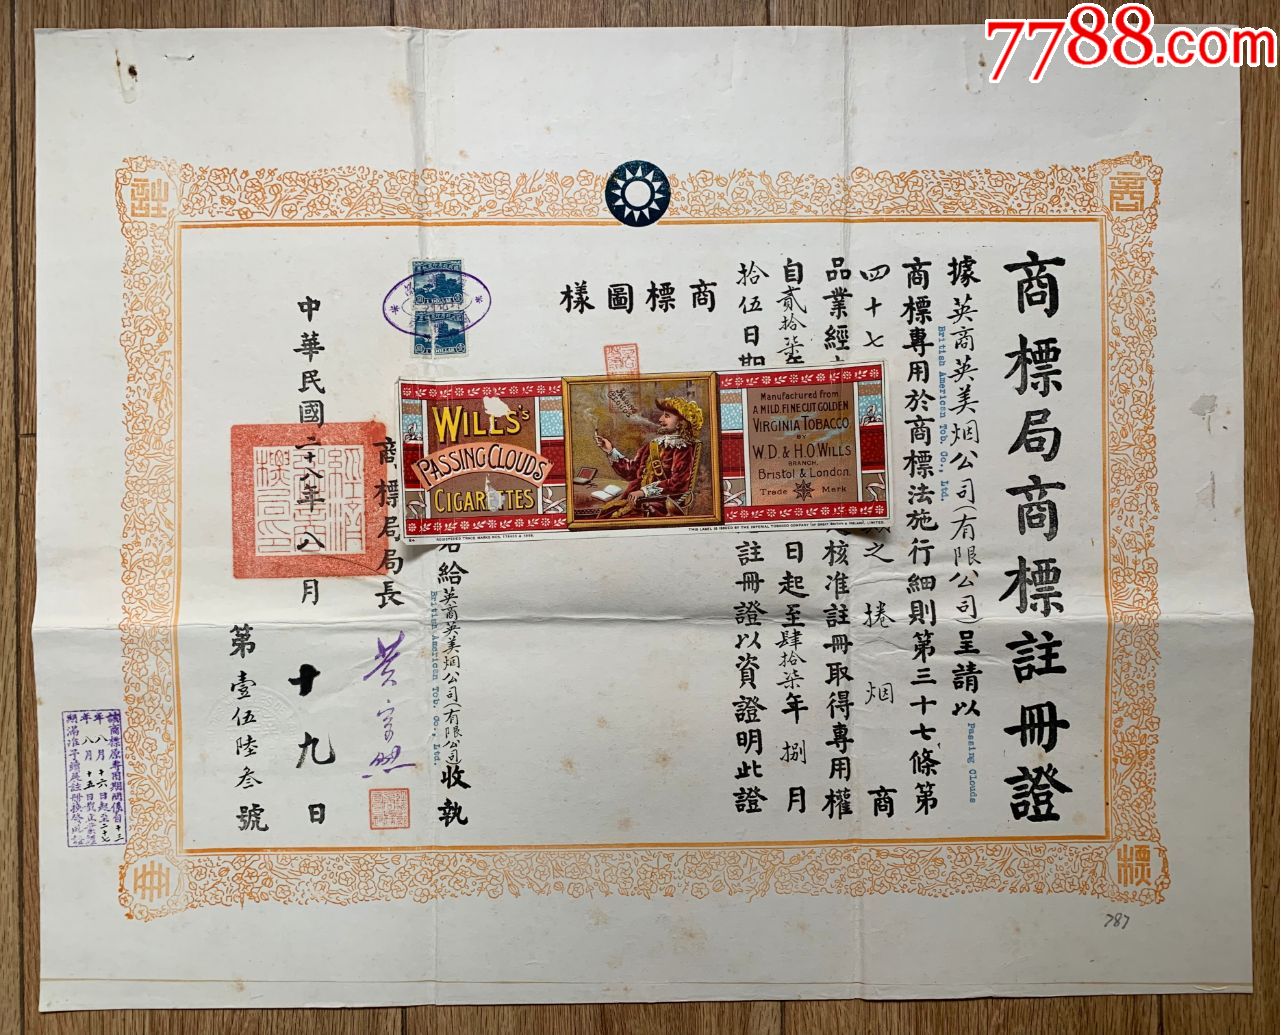 7788.com
商標局商標註冊證
據英商英美烟公司(有限公司)呈請以
British American Tob. Co., Ltd.
Passing Clouds
商標專用於商標法施行細則第三十七條第
四十七
之捲烟商
品業經
核准註冊取得專用權
自貳拾柒
日起至肆拾柒年捌月
拾伍日期
註冊證以資證明此證
商標圖樣
WILLS's
PASSING CLOUDS
CIGARETTES
Manufactured from
A MILD, FINE CUT GOLDEN
VIRGINIA TOBACCO
BY
W.D. & H.O. WILLS
BRANCH.
Bristol & London.
Trade Mark
THIS LABEL IS ISSUED BY THE IMPERIAL TOBACCO COMPANY (OF GREAT BRITAIN & IRELAND), LIMITED.
REGISTERED TRADE MARKS NOS.
給英商英美烟公司(有限公司)收執
British American Tob. Co., Ltd.
商標局局長
中華民國二十八年八月十九日
第壹伍陸叁號
該商標原專用期間係自十三
年八月十六日起至二十七
年八月十五日
期滿准予續展註冊換發
787